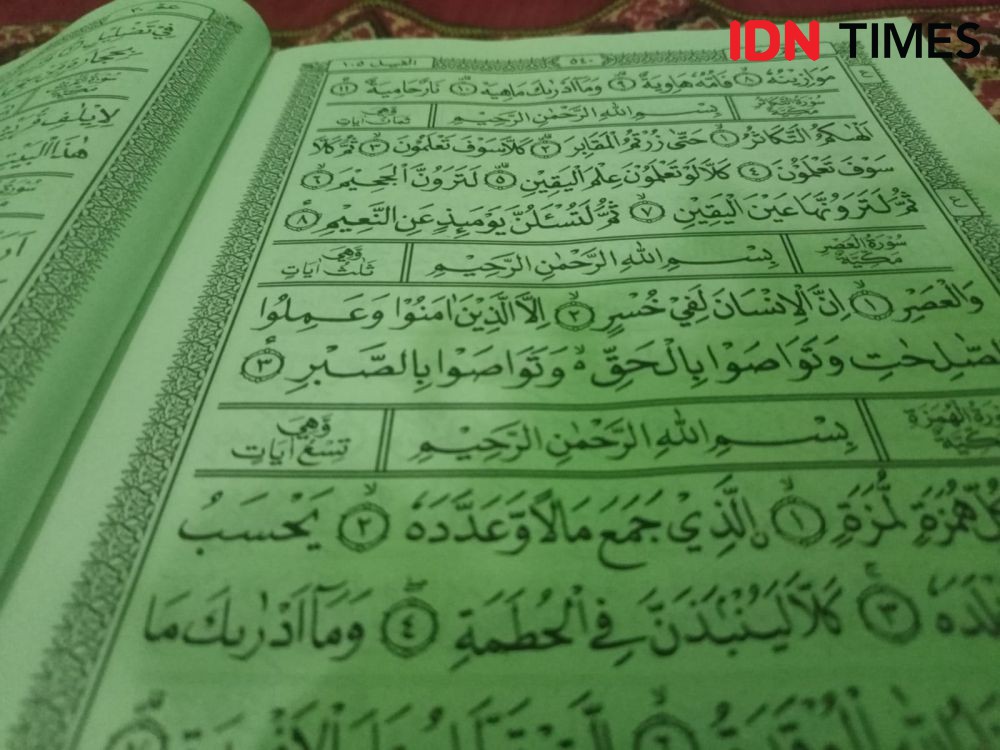 IDN TIMES
الفيل ١٠٥
٥٤٠
مَوَازِينُهُ ٨ فَأُمُّهُ هَاوِيَةٌ ٩ وَمَا أَدْرٰىكَ مَاهِيَهْ ١٠ نَارٌ حَامِيَةٌ ١١
سُورَةُ التَّكَاثُرِ مَكِّيَّةٌ بِسْمِ اللهِ الرَّحْمٰنِ الرَّحِيمِ وَهِيَ ثَمَانُ آيَاتٍ
اَلْهٰىكُمُ التَّكَاثُرُ ١ حَتّٰى زُرْتُمُ الْمَقَابِرَ ٢ كَلَّا سَوْفَ تَعْلَمُونَ ٣ ثُمَّ كَلَّا
سَوْفَ تَعْلَمُوْنَ ٤ كَلَّا لَوْ تَعْلَمُوْنَ عِلْمَ الْيَقِيْنِ ٥ لَتَرَوُنَّ الْجَحِيْمَ ٦
ثُمَّ لَتَرَوُنَّهَا عَيْنَ الْيَقِيْنِ ٧ ثُمَّ لَتُسْئَلُنَّ يَوْمَئِذٍ عَنِ النَّعِيْمِ ٨
سُوْرَةُ الْعَصْرِ مَكِّيَّةٌ بِسْمِ اللهِ الرَّحْمٰنِ الرَّحِيمِ وَهِيَ ثَلٰثُ آيَاتٍ
وَالْعَصْرِ ١ اِنَّ الْاِنْسَانَ لَفِيْ خُسْرٍ ٢ اِلَّا الَّذِيْنَ اٰمَنُوْا وَعَمِلُوا
الصّٰلِحٰتِ وَتَوَاصَوْا بِالْحَقِّ ە وَتَوَاصَوْا بِالصَّبْرِ ٣
سُورَةُ الْهُمَزَةِ مَكِّيَّةٌ بِسْمِ اللهِ الرَّحْمٰنِ الرَّحِيمِ وَهِيَ تِسْعُ آيَاتٍ
كُلِّ هُمَزَةٍ لُّمَزَةٍ ١ الَّذِيْ جَمَعَ مَالًا وَّعَدَّدَهٗ ٢ يَحْسَبُ
كَلَّا لَيُنْبَذَنَّ فِي الْحُطَمَةِ ٤ وَمَآ اَدْرٰىكَ مَا